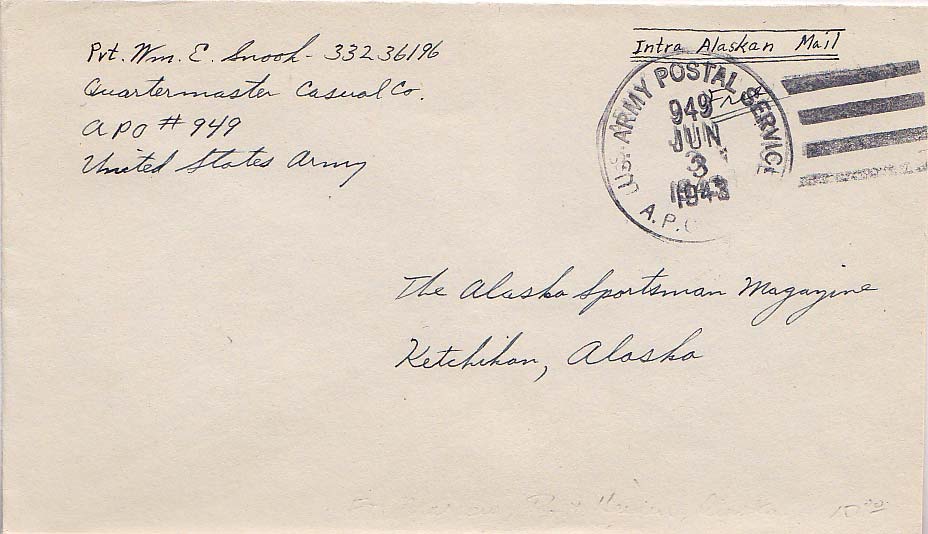 Pvt. Wm. E. Snook - 33236196
Quartermaster Casual Co.
APO # 949
United States Army
Intra Alaskan Mail
Free
U.S. ARMY POSTAL SERVICE
949
JUN
3
1943
A.P.O.
The Alaska Sportsman Magazine
Ketchikan, Alaska
10.00